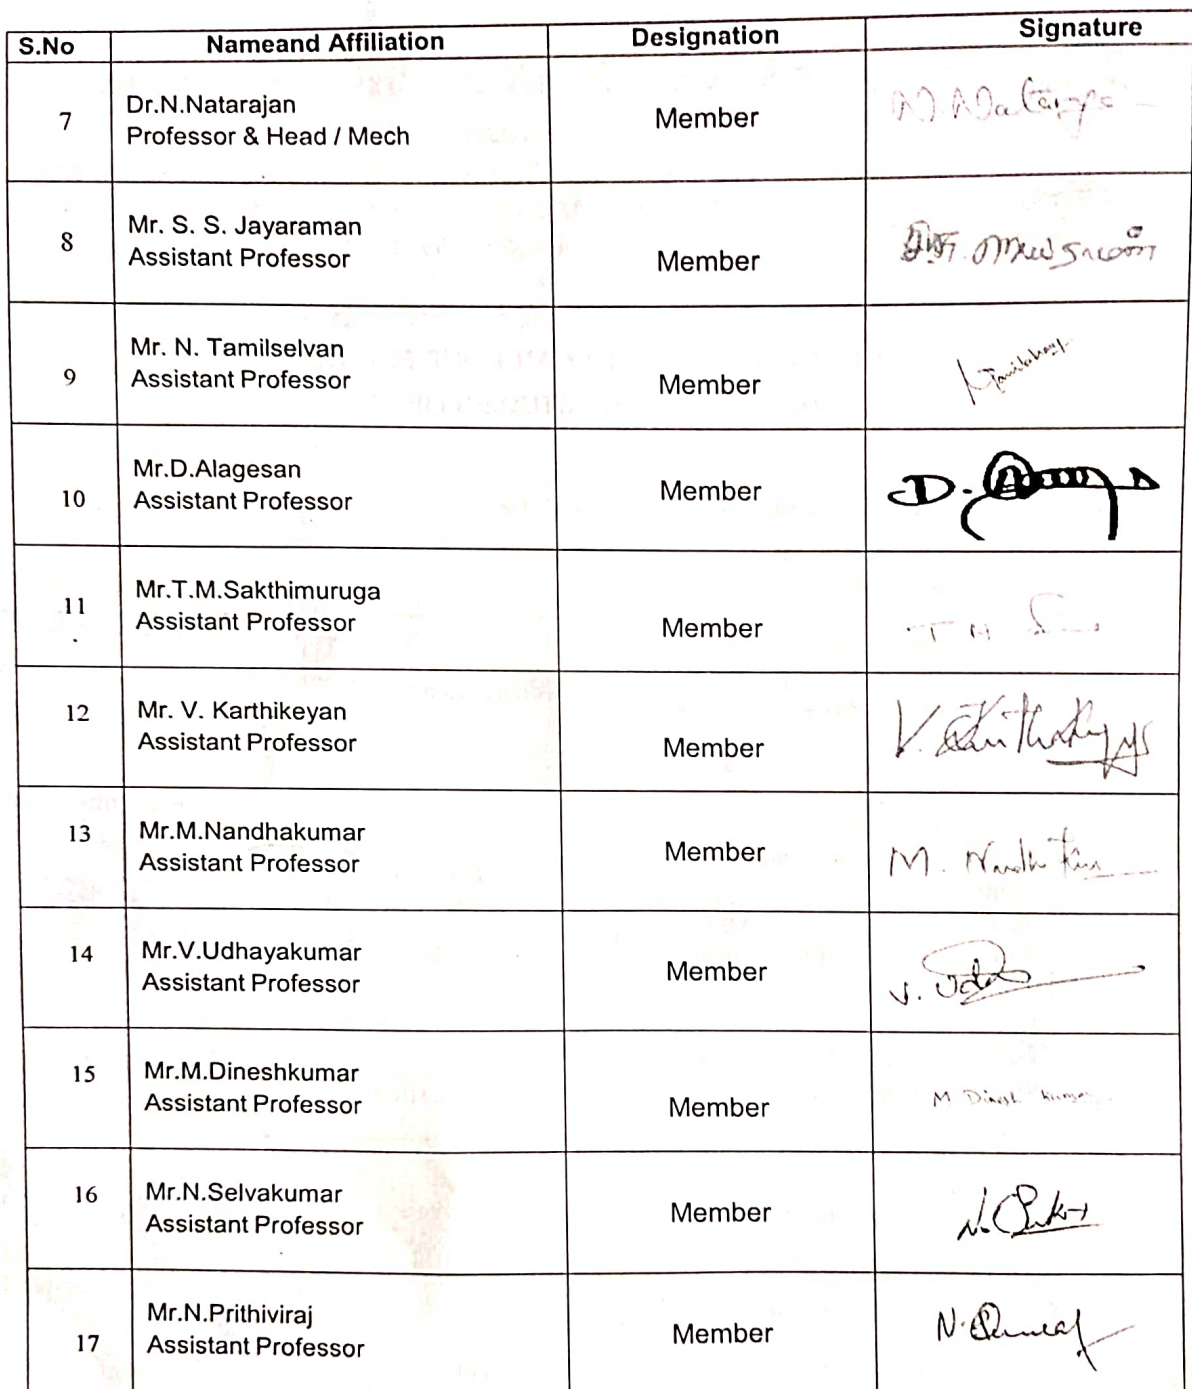 S.No Nameand Affiliation Designation Signature
7 Dr.N.Natarajan
Professor & Head / Mech Member N. Natarajan
8 Mr. S. S. Jayaraman
Assistant Professor Member
9 Mr. N. Tamilselvan
Assistant Professor Member
10 Mr.D.Alagesan
Assistant Professor Member D.
11 Mr.T.M.Sakthimuruga
Assistant Professor Member T M
12 Mr. V. Karthikeyan
Assistant Professor Member V. Karthikeyan
13 Mr.M.Nandhakumar
Assistant Professor Member M.
14 Mr.V.Udhayakumar
Assistant Professor Member V.
15 Mr.M.Dineshkumar
Assistant Professor Member M Dinesh kumar
16 Mr.N.Selvakumar
Assistant Professor Member N.
17 Mr.N.Prithiviraj
Assistant Professor Member N.